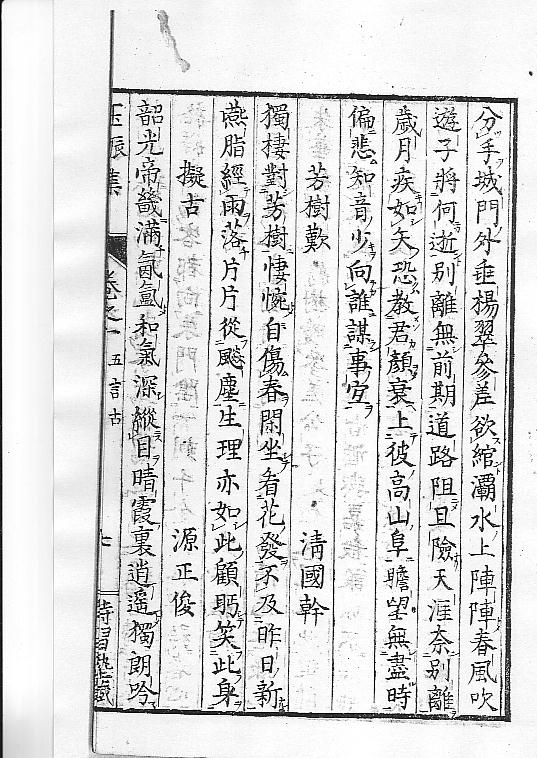 分手城門外垂楊翠參差欲綰灞水上陣陣春風吹
遊子將何逝別離無前期道路阻且險天涯奈別離
歲月疾如矢恐教君顏衰上彼高山阜瞻望無盡時
偏悲知音少向誰謀事宜
芳樹歎 清國幹
獨棲對芳樹悽惋自傷春閑坐看花發不及昨日新
燕脂經雨落片片從飈塵生理亦如此顧眄笑此身
擬古 源正俊
韶光帝畿滿氤氳和氣深縱目晴霞裏逍遙獨朗吟
玉振集 卷之一 五言古 七 時習塾藏